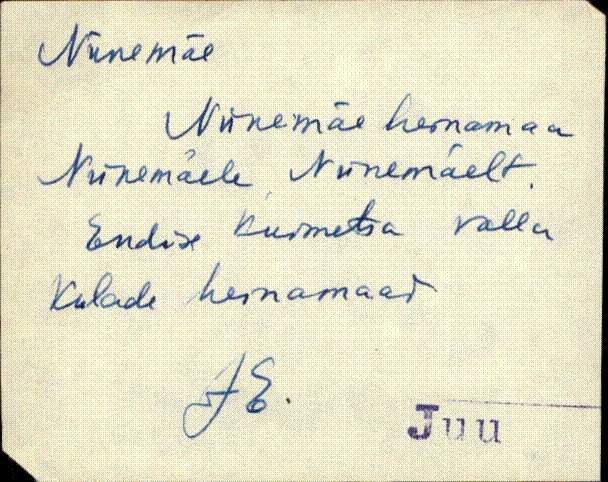 Niinemäe
Niinemäe heinamaa
Niinemäele, Niinemäelt.
Endise Kuimetsa valla
Külade heinamaad
J E.
Juu